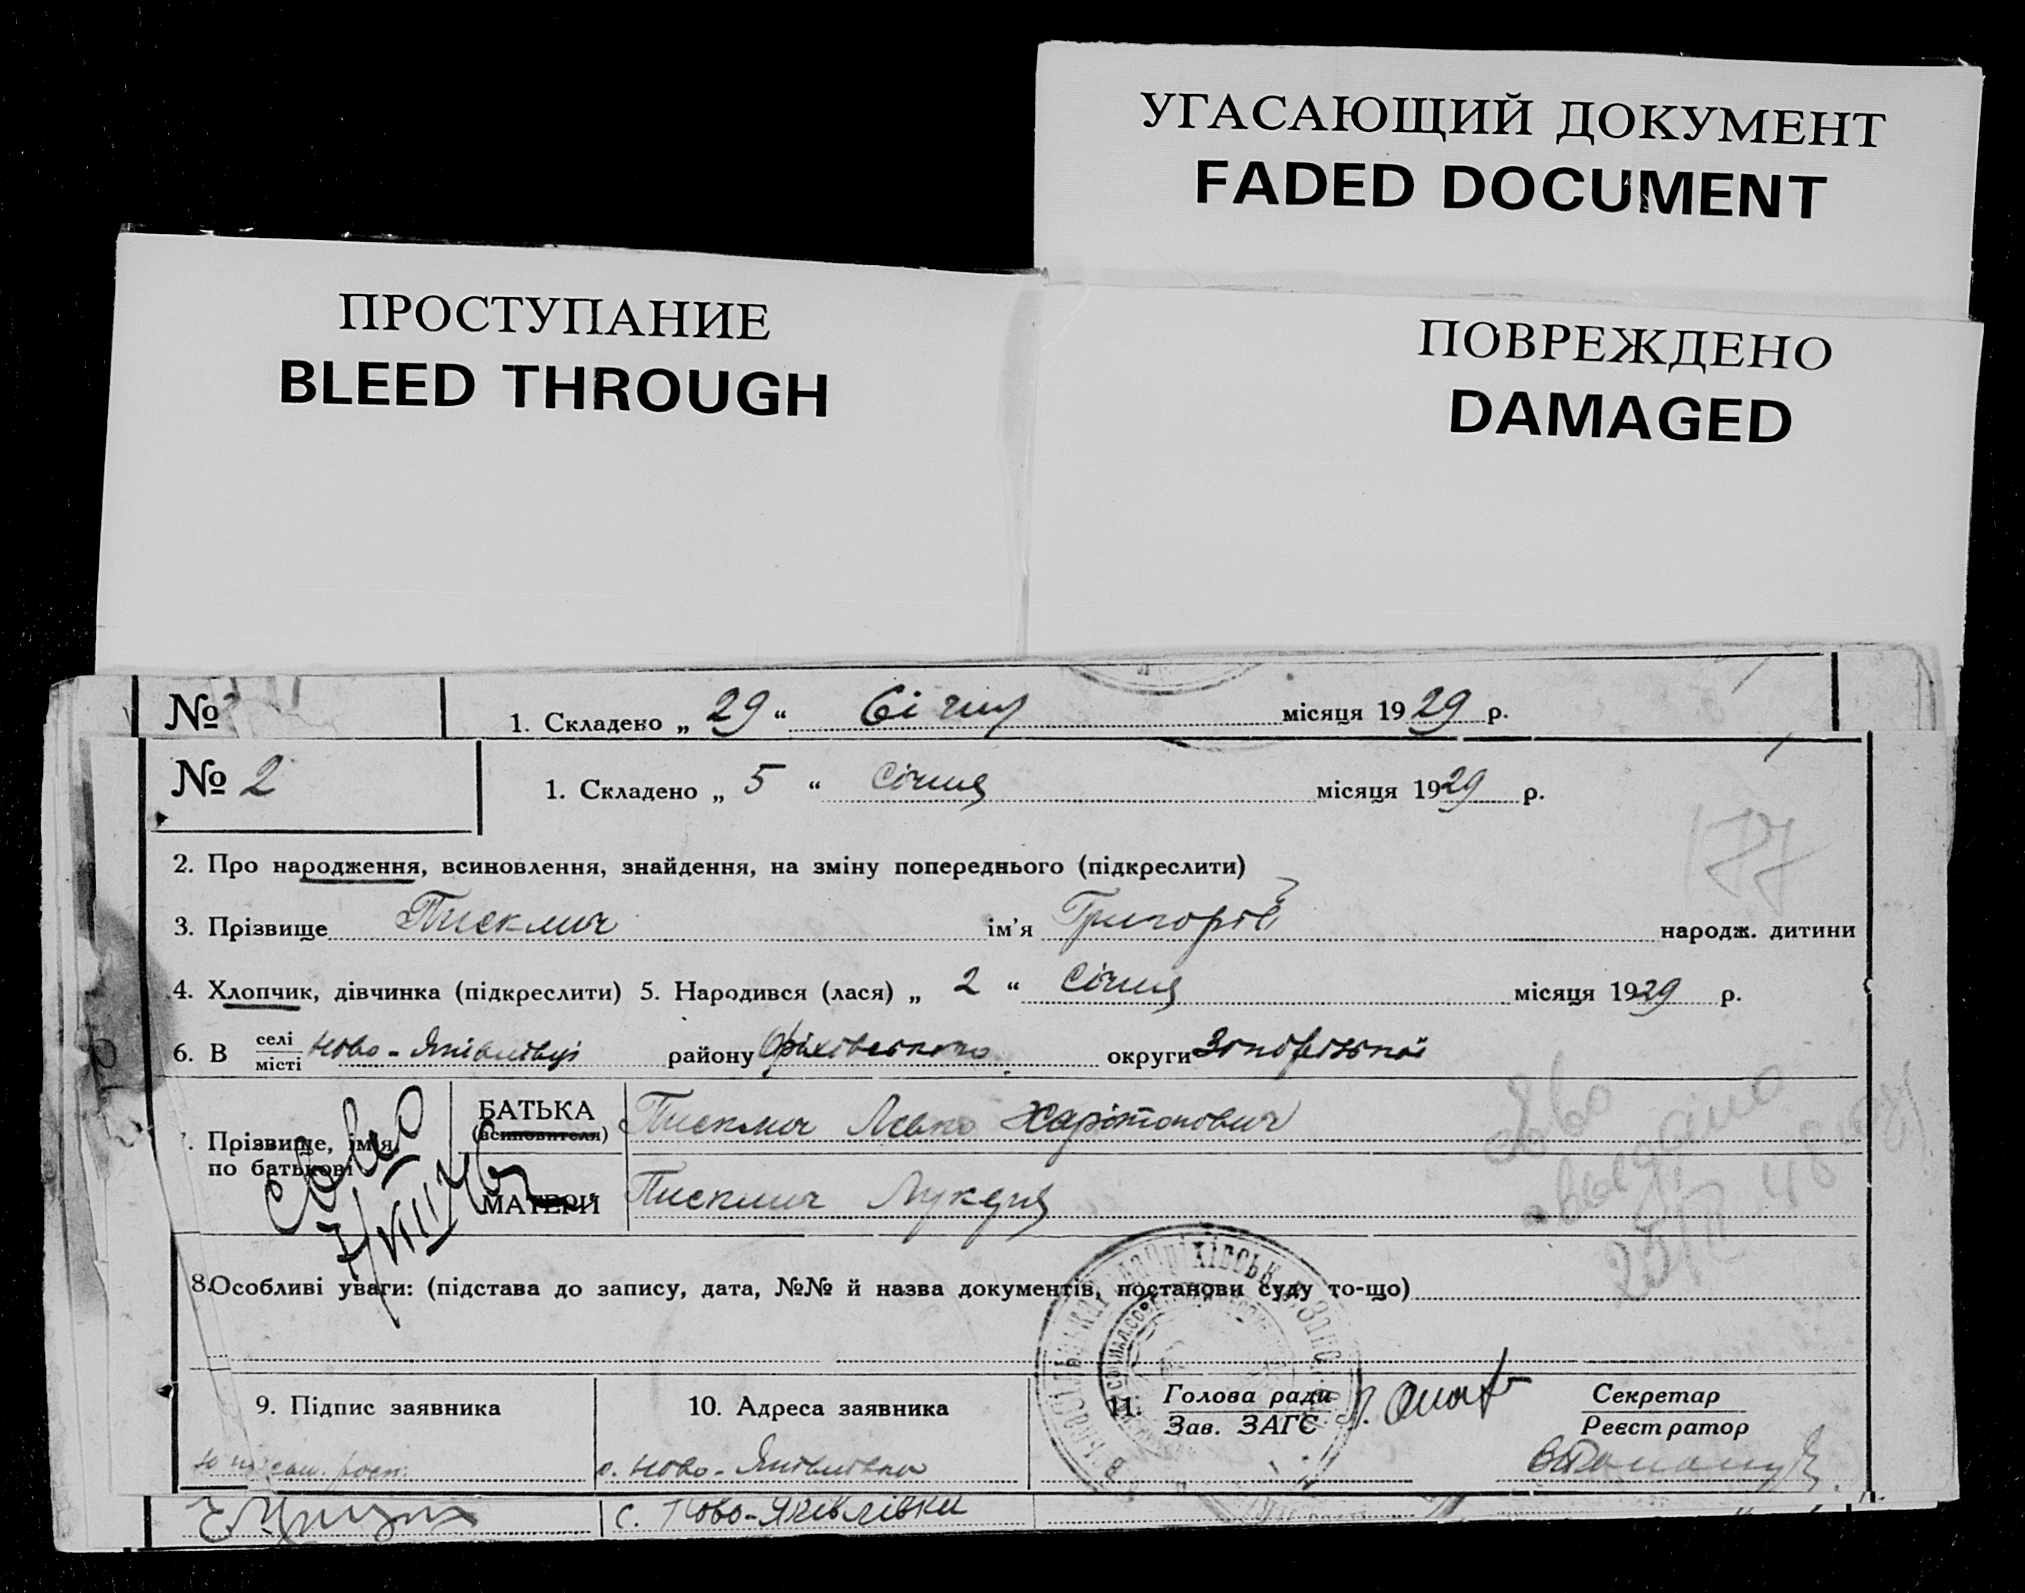 УГАСАЮЩИЙ ДОКУМЕНТ
FADED DOCUMENT
ПРОСТУПАНИЕ
BLEED THROUGH
ПОВРЕЖДЕНО
DAMAGED
№
1. Складено „ 29 “ Січня місяця 1929 р.
№ 2
1. Складено „ 5 “ Січня місяця 1929 р.
177
2. Про народження, всиновлення, знайдення, на зміну попереднього (підкреслити)
3. Прізвище Писклич ім'я Григорій народж. дитини
4. Хлопчик, дівчинка (підкреслити) 5. Народився (лася) „ 2 “ Січня місяця 1929 р.
6. В селі місті Ново-Яківлівці району Оріхівського округи Запорізької
7. Прізвище, імя по батькові
БАТЬКА (всиновителя) Писклич Левко Харітонович
МАТЕРИ Писклич Лукерія
7/VIII 46
8. Особливі уваги: (підстава до запису, дата, №№ й назва документів, постанови суду то-що)
9. Підпис заявника
10. Адреса заявника
11. Голова ради
Зав. ЗАГС
Секретар
Реєстратор
с. Ново-Яківлівка
с. Ново-Яківлівки